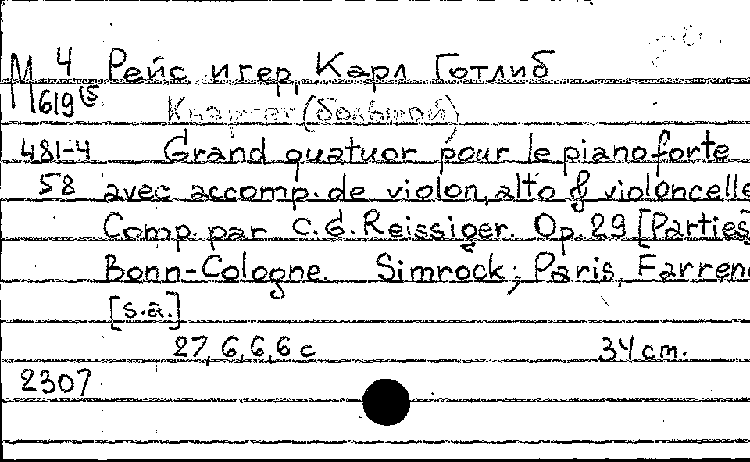 М 4 Рейсигер, Карл Готлиб
619
Квартет (большой)
481-4 Grand quatuor pour le pianoforte
58 avec accomp. de violon, alto & violoncelle
Comp. par C. G. Reissiger. Op. 29 [Parties]
Bonn-Cologne. Simrock; Paris, Farrenc
[s.a.]
27, 6, 6, 6 с 34 cm.
2307